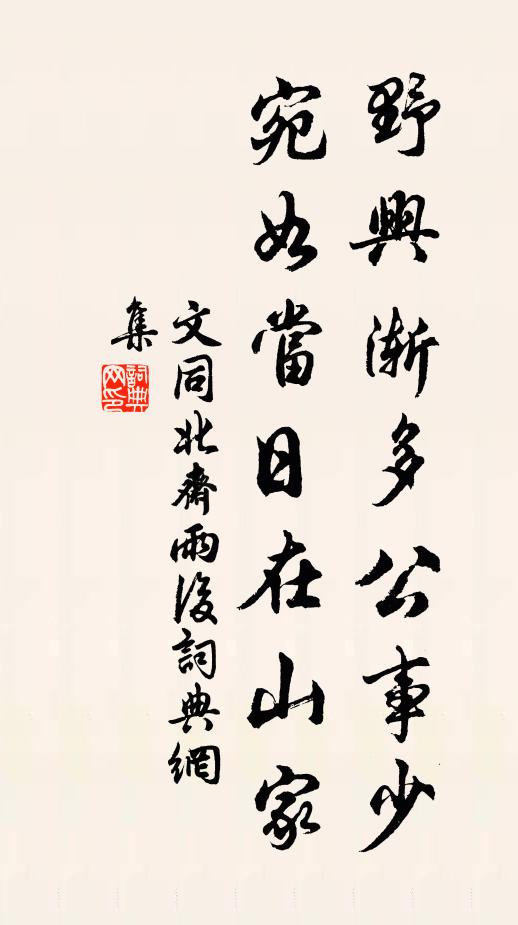 野興漸多公事少
宛如當日在山家
文同北齋雨後詞典網
集
詞典
网印